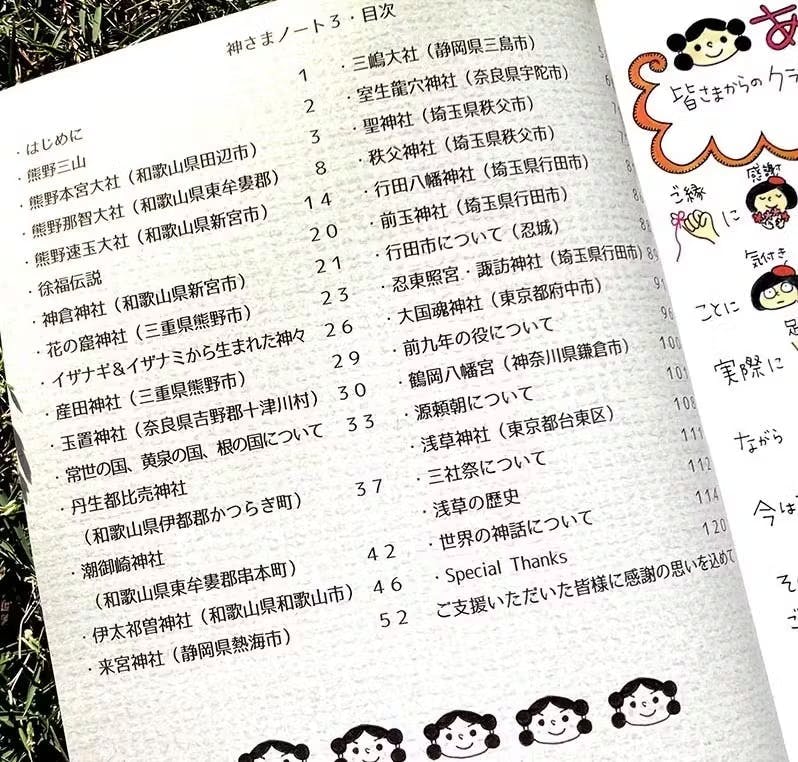 神さまノート3・目次
・はじめに 1
・熊野三山 2
・熊野本宮大社(和歌山県田辺市) 3
・熊野那智大社(和歌山県東牟婁郡) 8
・熊野速玉大社(和歌山県新宮市) 14
・徐福伝説 20
・神倉神社(和歌山県新宮市) 21
・花の窟神社(三重県熊野市) 23
・イザナギ&イザナミから生まれた神々 26
・産田神社(三重県熊野市) 29
・玉置神社(奈良県吉野郡十津川村) 30
・常世の国、黄泉の国、根の国について 33
・丹生都比売神社
(和歌山県伊都郡かつらぎ町) 37
・潮御崎神社
(和歌山県東牟婁郡串本町) 42
・伊太祁曽神社(和歌山県和歌山市) 46
・来宮神社(静岡県熱海市) 52
・三嶋大社(静岡県三島市)
・室生龍穴神社(奈良県宇陀市)
・聖神社(埼玉県秩父市)
・秩父神社(埼玉県秩父市)
・行田八幡神社(埼玉県行田市)
・前玉神社(埼玉県行田市)
・行田市について(忍城)
・忍東照宮・諏訪神社(埼玉県行田市)
・大国魂神社(東京都府中市)
・前九年の役について
・鶴岡八幡宮(神奈川県鎌倉市)
・源頼朝について
・浅草神社(東京都台東区) 108
・三社祭について 111
・浅草の歴史 112
・世界の神話について 114
・Special Thanks 120
ご支援いただいた皆様に感謝の思いを込めて
あ
皆さまからのクラ
感謝
ご縁
に
気付き
ことに
実際に
ながら
今は